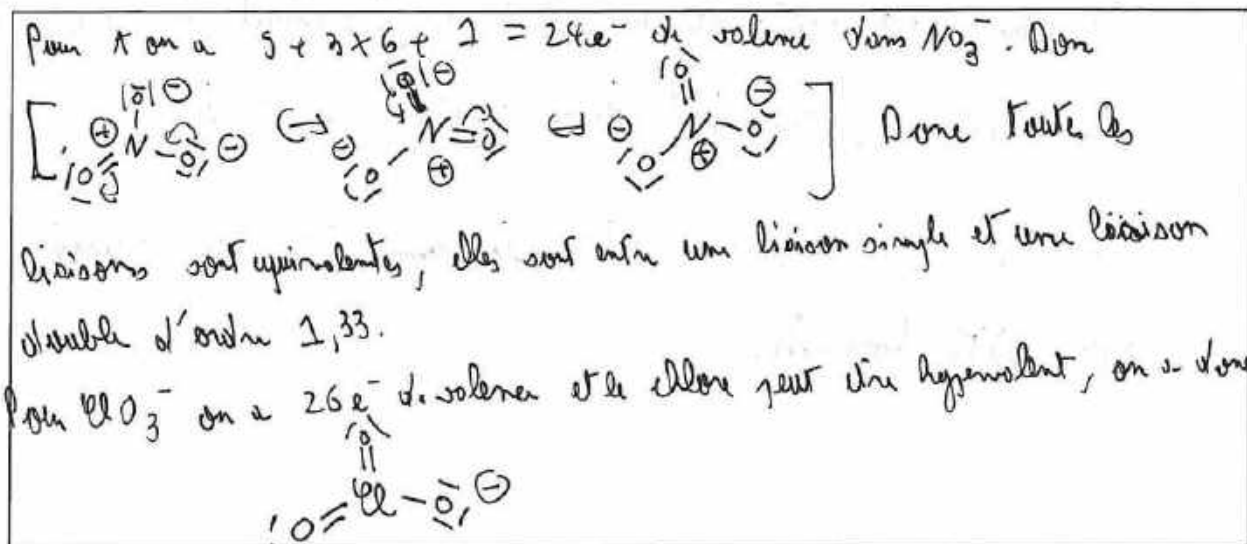 Pour A on a 5 + 3 × 6 + 1 = 24 e⁻ de valence dans NO₃⁻. Donc
Donc toutes les
liaisons sont equivalentes, elles sont entre une liaison simple et une liaison
double d'ordre 1,33.
Pour ClO₃⁻ on a 26 e⁻ de valence et le chlore peut être hypervalent, on a donc